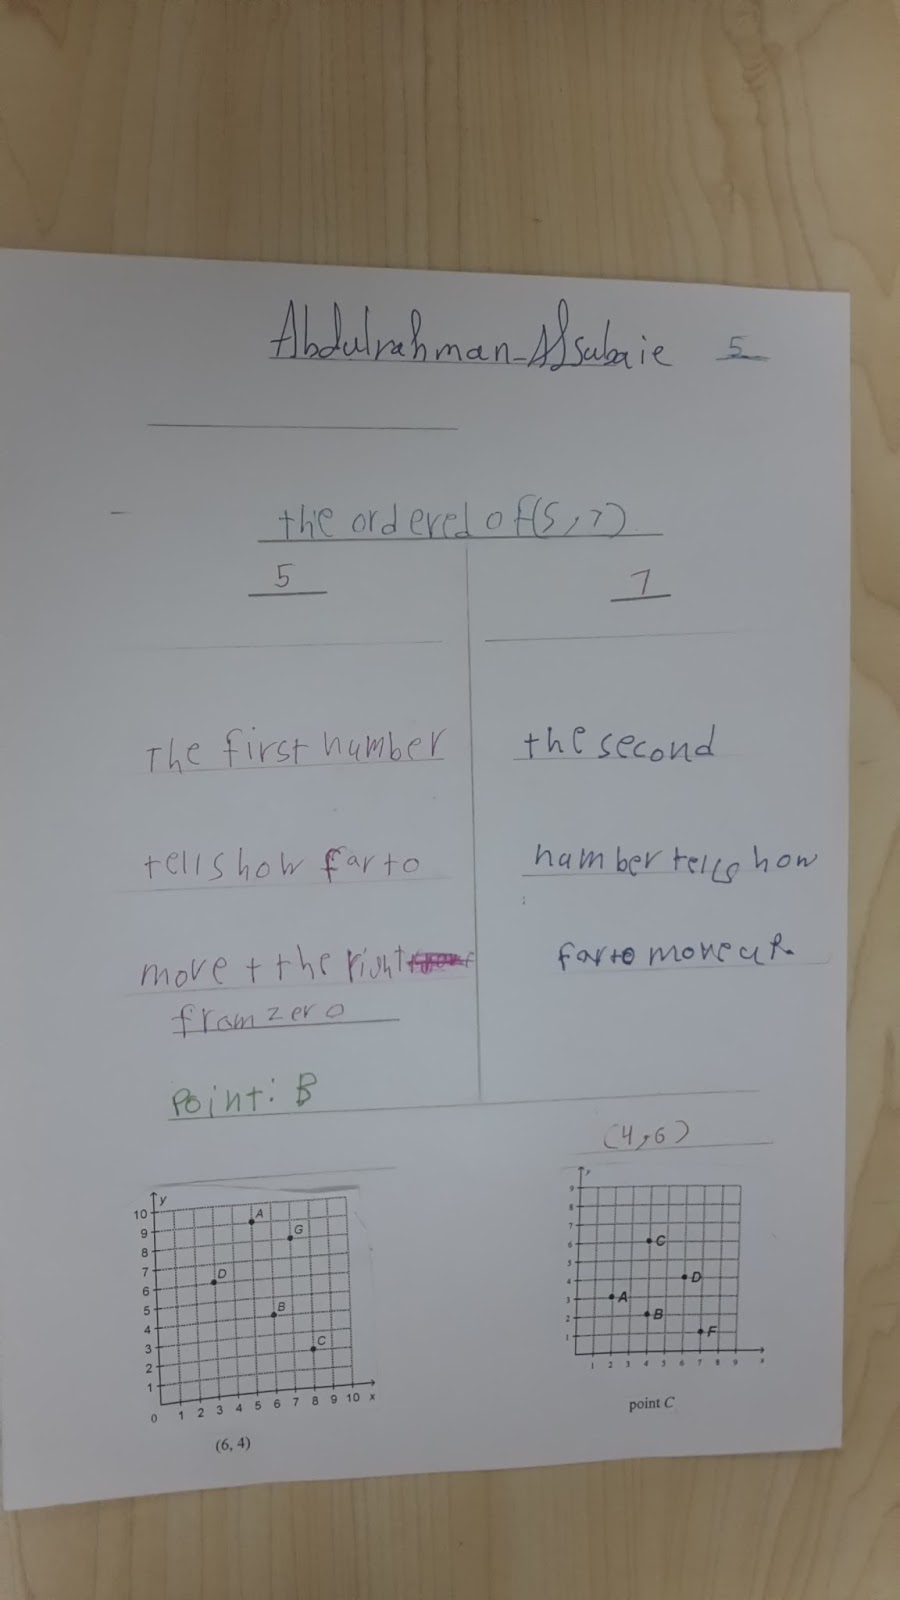 Abdulrahman-Alsubaie 5
the ordered of(5,7)
5
7
The first number
tells how far to
move t the right
from zero
Point: B
the second
number tells how
far to move up.
(4,6)
y
10
9
8
7
6
5
4
3
2
1
0 1 2 3 4 5 6 7 8 9 10 x
A
G
D
B
C
(6, 4)
y
9
8
7
6
5
4
3
2
1
1 2 3 4 5 6 7 8 9 x
C
D
A
B
F
point C